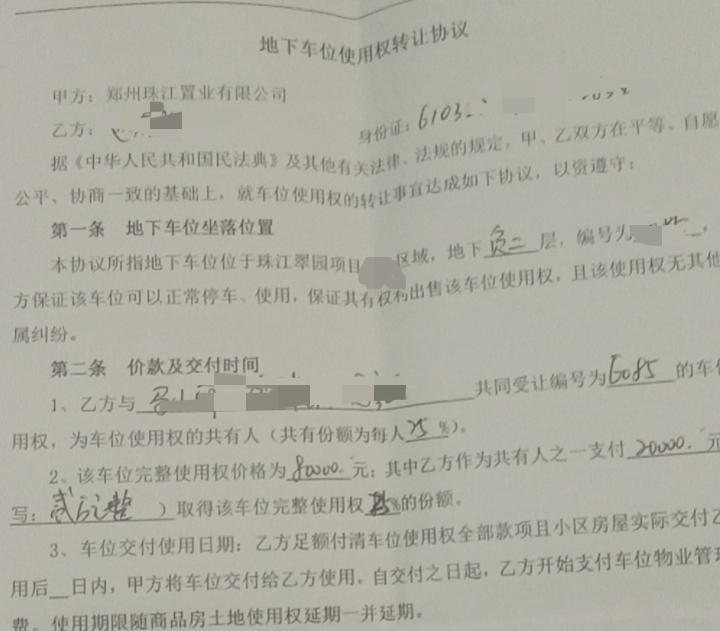 地下车位使用权转让协议
甲方：郑州珠江置业有限公司
乙方： 身份证：6103
据《中华人民共和国民法典》及其他有关法律、法规的规定，甲、乙双方在平等、自愿
公平、协商一致的基础上，就车位使用权的转让事宜达成如下协议，以资遵守：
第一条 地下车位坐落位置
本协议所指地下车位位于珠江翠园项目 区域，地下负二层，编号为 ，
方保证该车位可以正常停车、使用，保证其有权利出售该车位使用权，且该使用权无其他
属纠纷。
第二条 价款及交付时间
1、乙方与 共同受让编号为6085的车位
用权，为车位使用权的共有人（共有份额为每人25%）。
2、该车位完整使用权价格为80000.元；其中乙方作为共有人之一支付20000.元
写：贰万元整）取得该车位完整使用权 %的份额。
3、车位交付使用日期：乙方足额付清车位使用权全部款项且小区房屋实际交付乙
用后__日内，甲方将车位交付给乙方使用。自交付之日起，乙方开始支付车位物业管理
费。使用期限随商品房土地使用权延期一并延期。